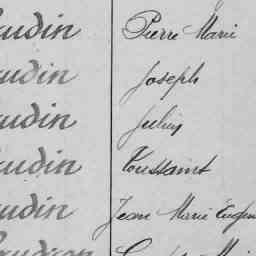 udin Pierre Marie
udin Joseph
udin Julien
udin Toussaint
udin Jean Marie Eugène